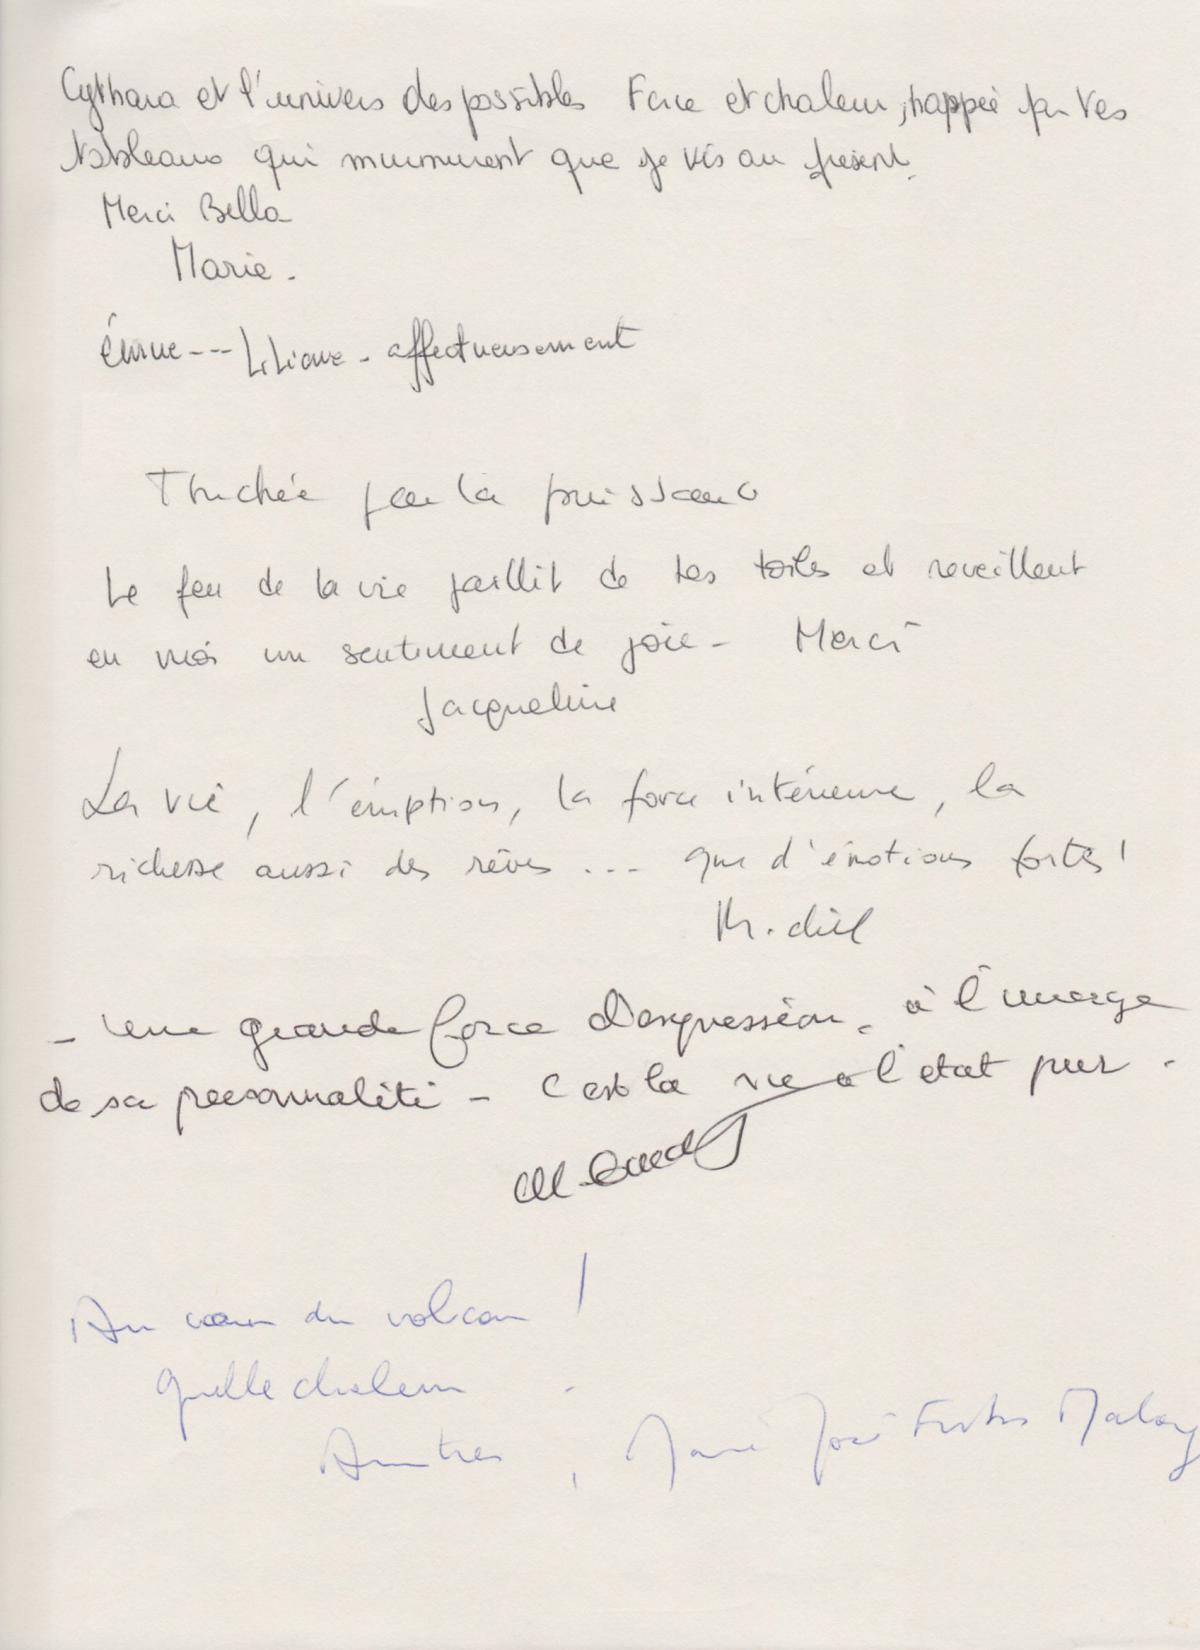 Cythara et l'univers des possibles Force et chaleur, happée par tes
tableaux qui murmurent que je vis au présent.
Merci Bella
Marie.
émue --- Liliane - affectueusement
Touchée par la puissance
Le feu de la vie jaillit de tes toiles et reveillent
en moi un sentiment de joie - Merci
Jacqueline
La vie, l'éruption, la force intérieure, la
richesse aussi des rêves ... que d'émotions fortes!
- Une grande force d'expression. à l'image
de sa personnalité - C'est la vie à l'état pur.
Au cœur du volcan !
Quelle chaleur
Amitiés, Marie José